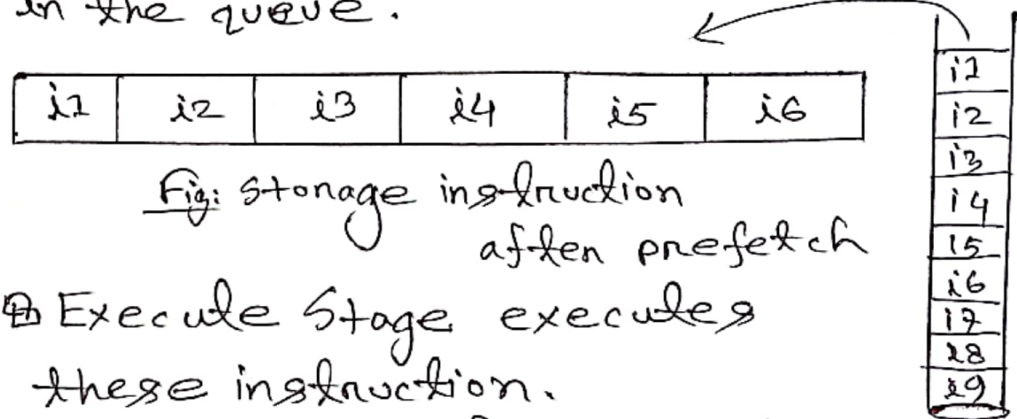 in the queue.
i1 i2 i3 i4 i5 i6
Fig: Storage instruction
after prefetch
Execute Stage executes
these instruction.
i1
i2
i3
i4
i5
i6
i7
i8
i9